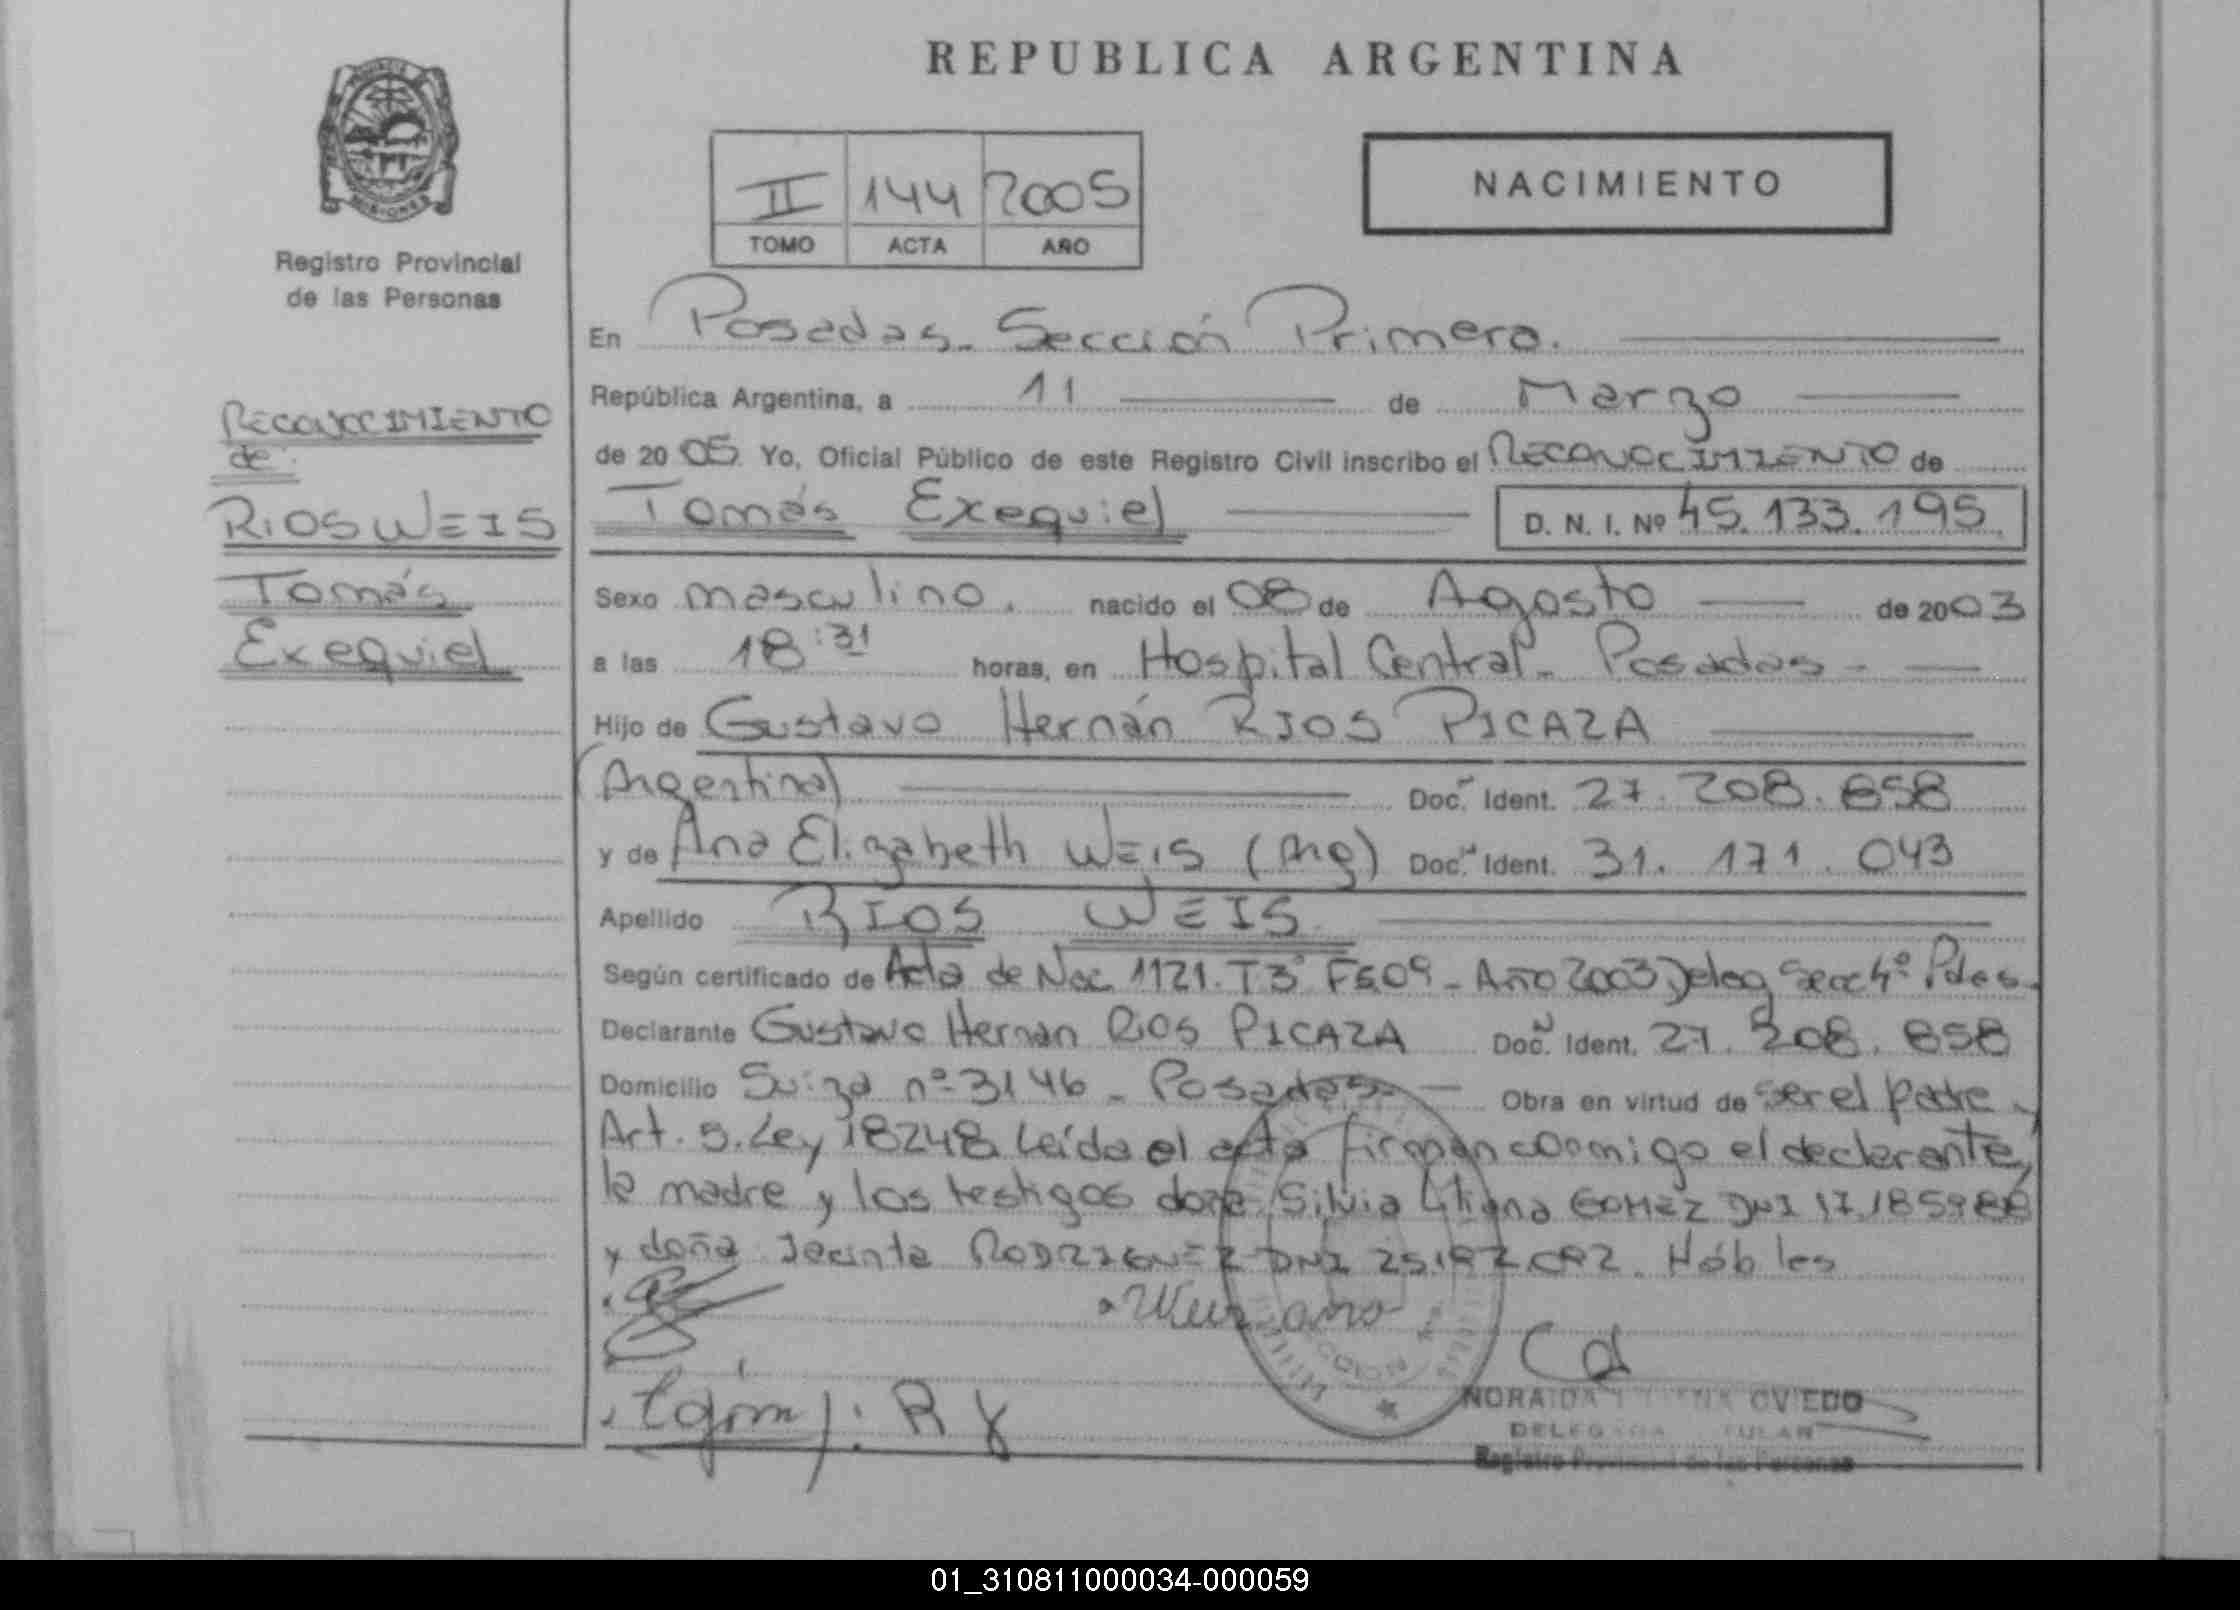 REPUBLICA ARGENTINA
PROVINCIA DE
MISIONES
Registro Provincial
de las Personas
II 144 2005
TOMO ACTA AÑO
NACIMIENTO
RECONOCIMIENTO
de:
RIOS WEIS
Tomás
Exequiel
En Posadas. Sección Primera.
República Argentina, a 11 de Marzo
de 2005. Yo, Oficial Público de este Registro Civil inscribo el RECONOCIMIENTO de
Tomás Exequiel D. N. I. Nº 45.133.195
Sexo masculino. nacido el 08 de Agosto de 2003
a las 18:31 horas, en Hospital Central - Posadas -
Hijo de Gustavo Hernán RIOS PICAZA
(Argentina) Doc. Ident. 27.208.858
y de Ana Elizabeth WEIS (Arg) Doc. Ident. 31.171.043
Apellido RIOS WEIS
Según certificado de Acta de Nac 1121. T3º F609 - Año 2003 Deleg Secc 4º Pdas.
Declarante Gustavo Hernan RIOS PICAZA Doc. Ident. 27.208.858
Domicilio Suiza nº 3146 - Posadas - Obra en virtud de ser el padre y
Art. 5. Ley 18248 Leída el acta firman conmigo el declarante,
la madre y los testigos doña Silvia Liliana GOMEZ DNI 17.185.988
y doña Jacinta RODRIGUEZ DNI Hábiles
NORAIDA OVIEDO
DELEGADA TITULAR
Registro Provincial de las Personas
01_310811000034-000059